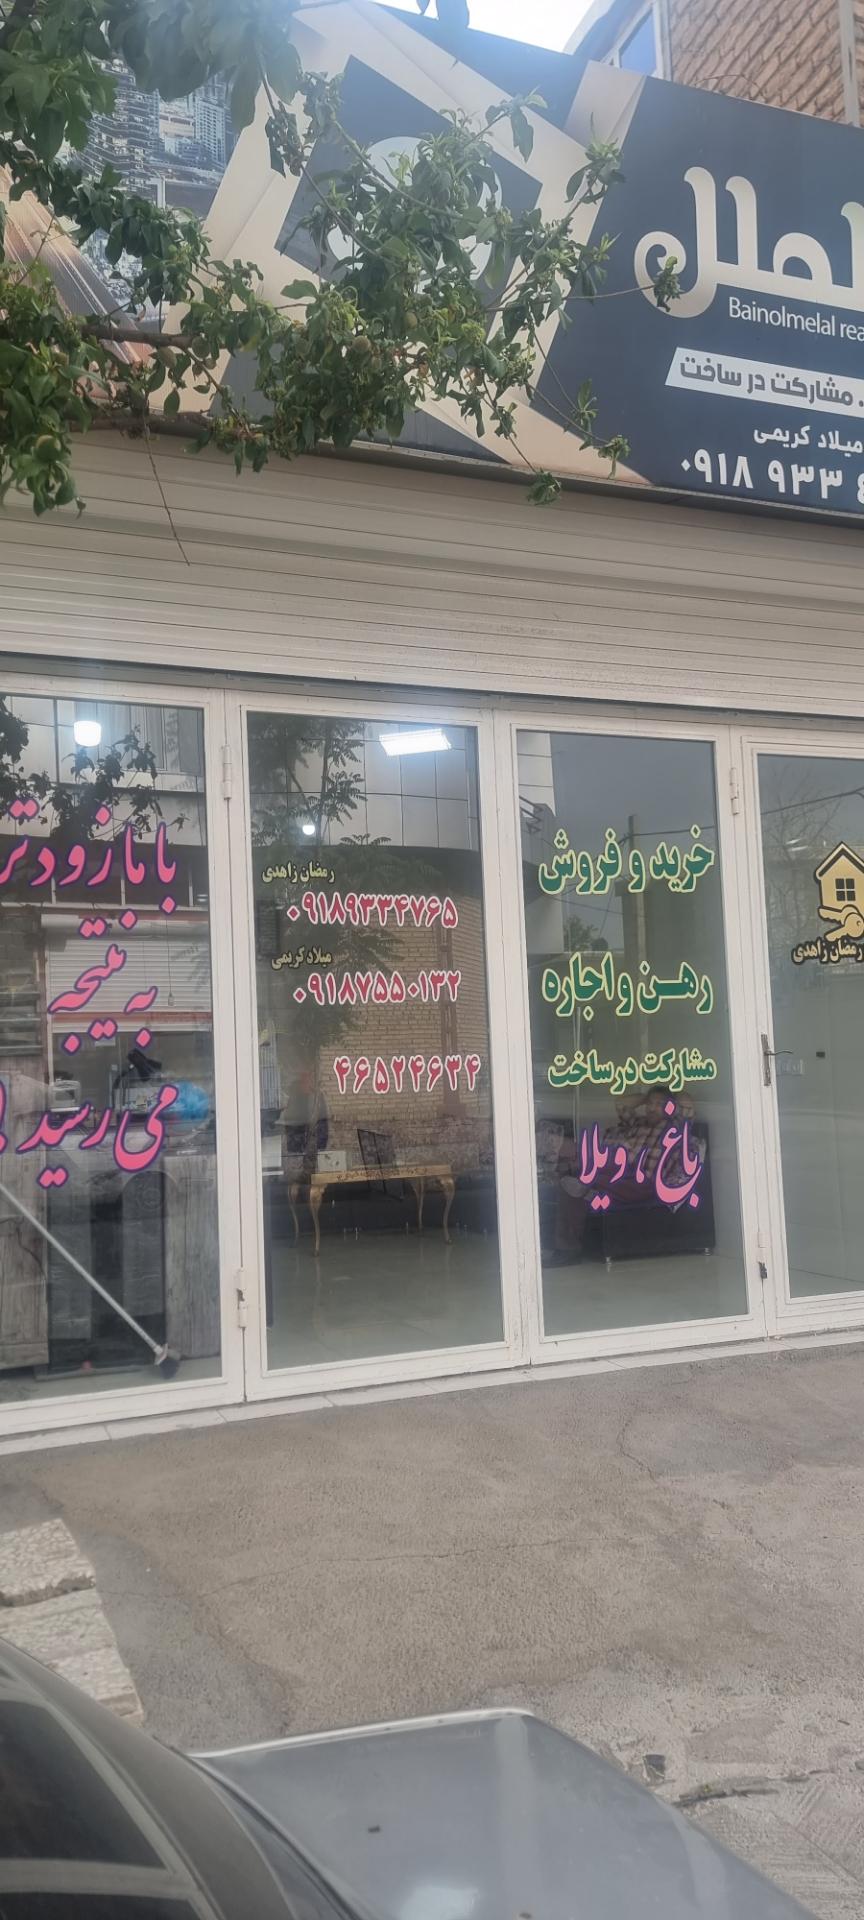 Bainolmelal
مشارکت در ساخت
میلاد کریمی
۰۹۱۸ ۹۳۳
با ما زودتر
به نتیجه
می رسید
رمضان زاهدی
۰۹۱۸۹۳۳۴۷۶۵
میلاد کریمی
۰۹۱۸۷۵۵۰۱۳۲
۴۶۵۲۴۶۳۴
خرید و فروش
رهن و اجاره
مشارکت در ساخت
باغ ، ویلا
رمضان زاهدی